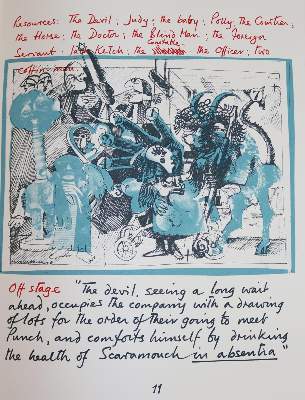 Resources: The Devil; Judy; the baby; Polly; the Courtier;
the Horse; the Doctor; the Blind Man; the Foreign
Servant; Jack Ketch; the Constable the Officer; two
coffin-men
Off stage "The devil, seeing a long wait
ahead, occupies the company with a drawing
of lots for the order of their going to meet
Punch, and comforts himself by drinking
the health of Scaramouch in absentia"
11